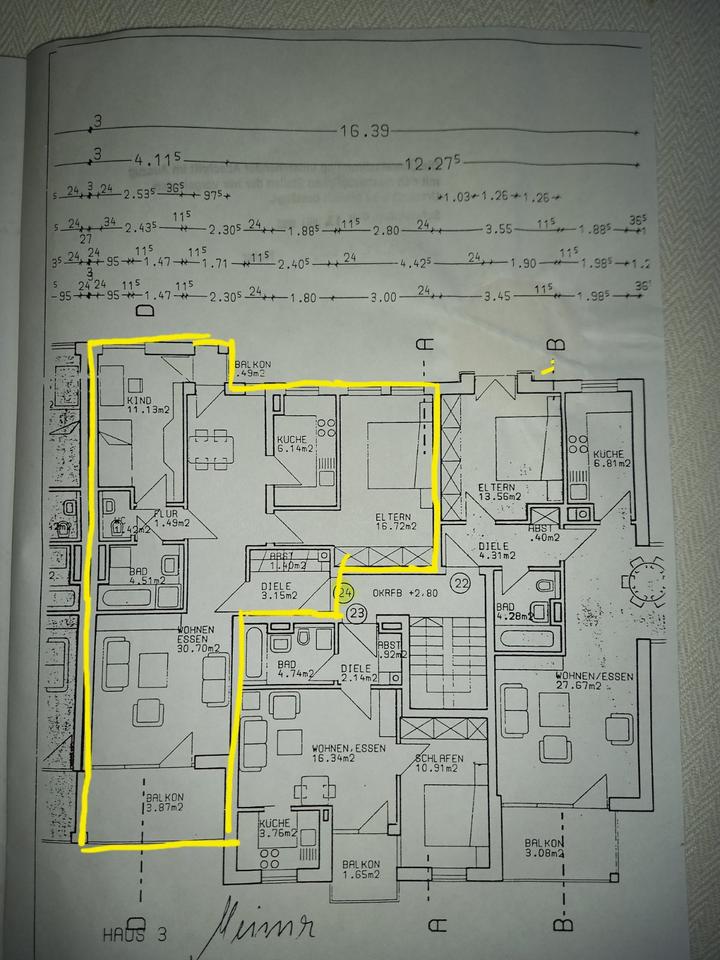 3
16.39
3 4.11⁵ 12.27⁵
5 24 3 24 2.53⁵ 36⁵ 97⁵ 1.03 1.26 1.26
5 24 34 2.43⁵ 11⁵ 2.30⁵ 24 1.88⁵ 11⁵ 2.80 24 3.55 11⁵ 1.88⁵ 36⁵
27
35 24 24 95 11⁵ 1.47 11⁵ 1.71 11⁵ 2.40⁵ 24 4.42⁵ 24 1.90 11⁵ 1.98⁵ 1.2
3
5 95 24 24 95 11⁵ 1.47 11⁵ 2.30⁵ 24 1.80 3.00 24 3.45 11⁵ 1.98⁵ 36⁵
D A B
BALKON
.49m2
KIND
11.13m2
KÜCHE
6.14m2
KÜCHE
6.81m2
ELTERN
13.56m2
ELTERN
16.72m2
FLUR
1.49m2
WC
1.42m2
ABST
.40m2
DIELE
4.31m2
ABST
1.40m2
BAD
4.51m2
DIELE
3.15m2
24
OKRFB +2.80
22
23
BAD
4.28m2
WOHNEN
ESSEN
30.70m2
BAD
4.74m2
DIELE
2.14m2
ABST
.92m2
WOHNEN/ESSEN
27.67m2
WOHNEN/ESSEN
16.34m2
SCHLAFEN
10.91m2
BALKON
3.87m2
KÜCHE
3.76m2
BALKON
1.65m2
BALKON
3.08m2
D A B
HAUS 3